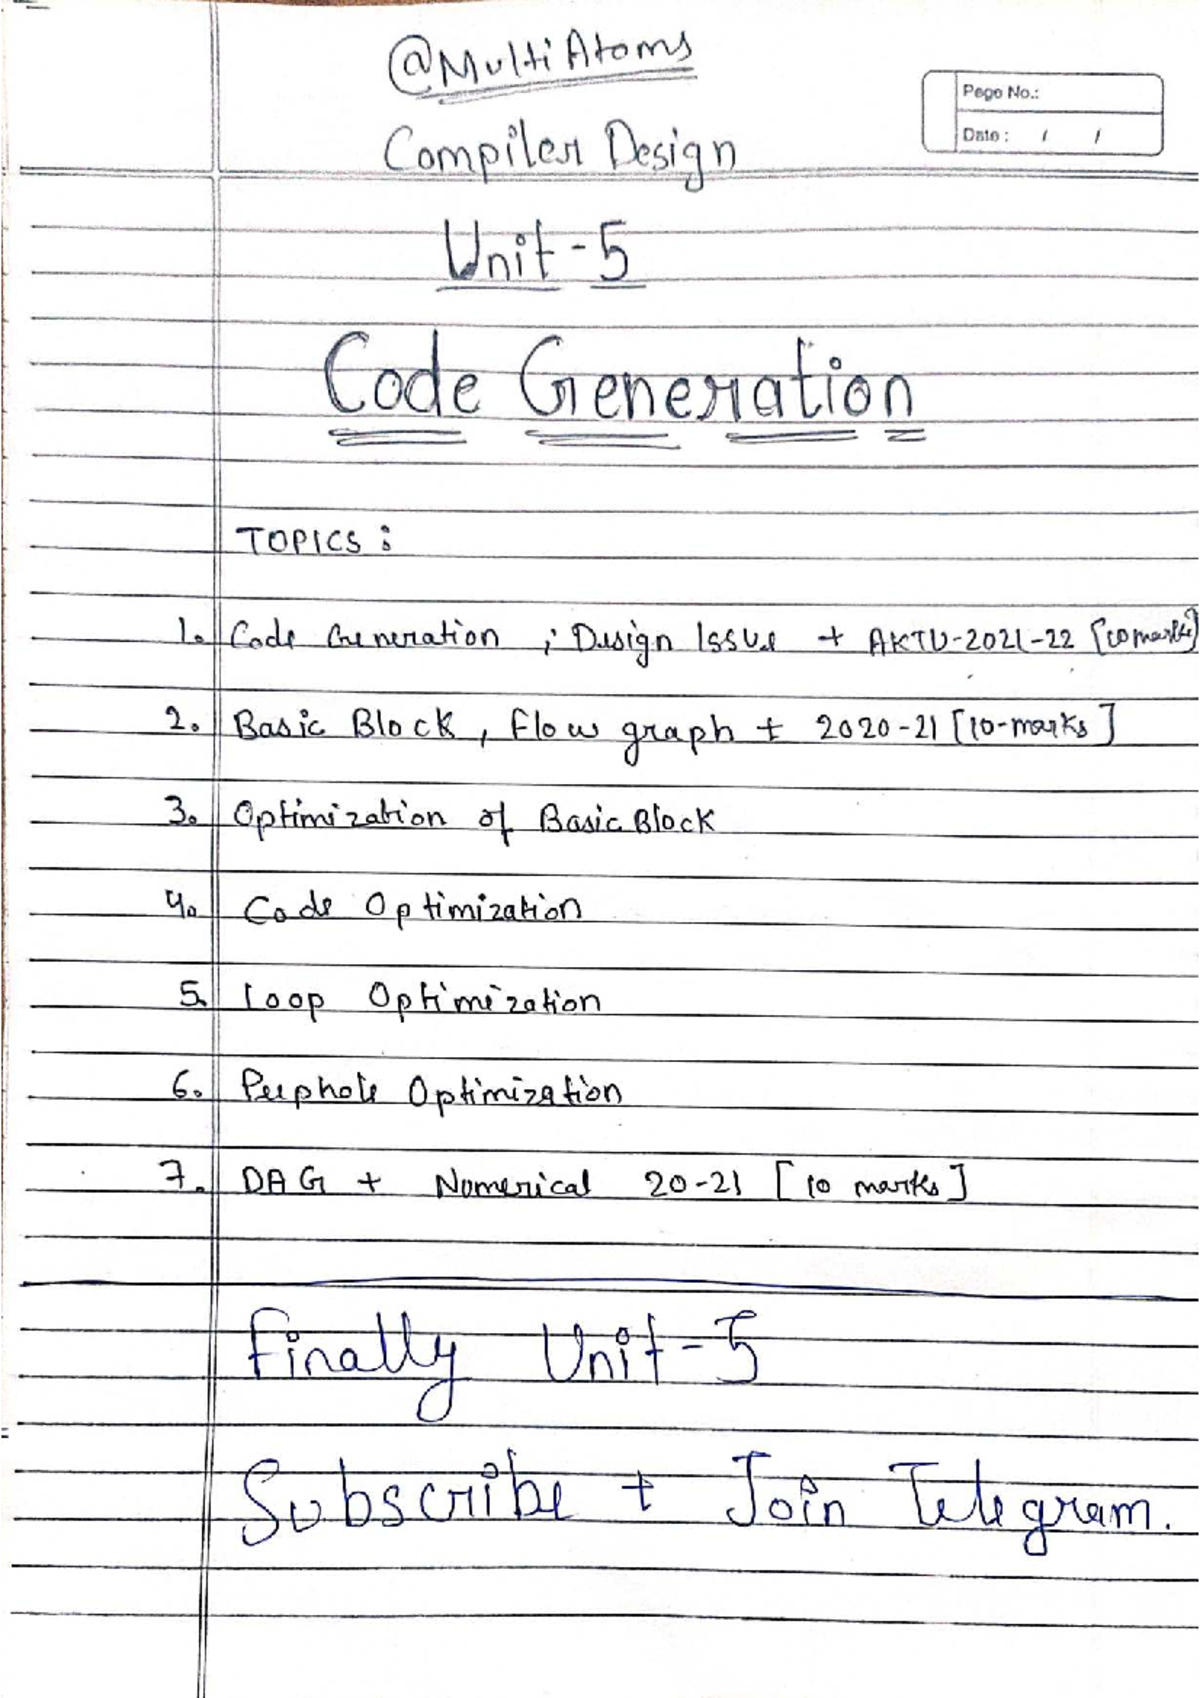 @MultiAtoms
Page No.:
Date : / /
Compiler Design
Unit-5
Code Generation
TOPICS :
1. Code Generation ; Design Issue + AKTU-2021-22 [10 marks]
2. Basic Block, flow graph + 2020-21 [10-marks]
3. Optimization of Basic Block
4. Code Optimization
5. Loop Optimization
6. Peephole Optimization
7. DAG + Numerical 20-21 [10 marks]
Finally Unit-5
Subscribe + Join Telegram.